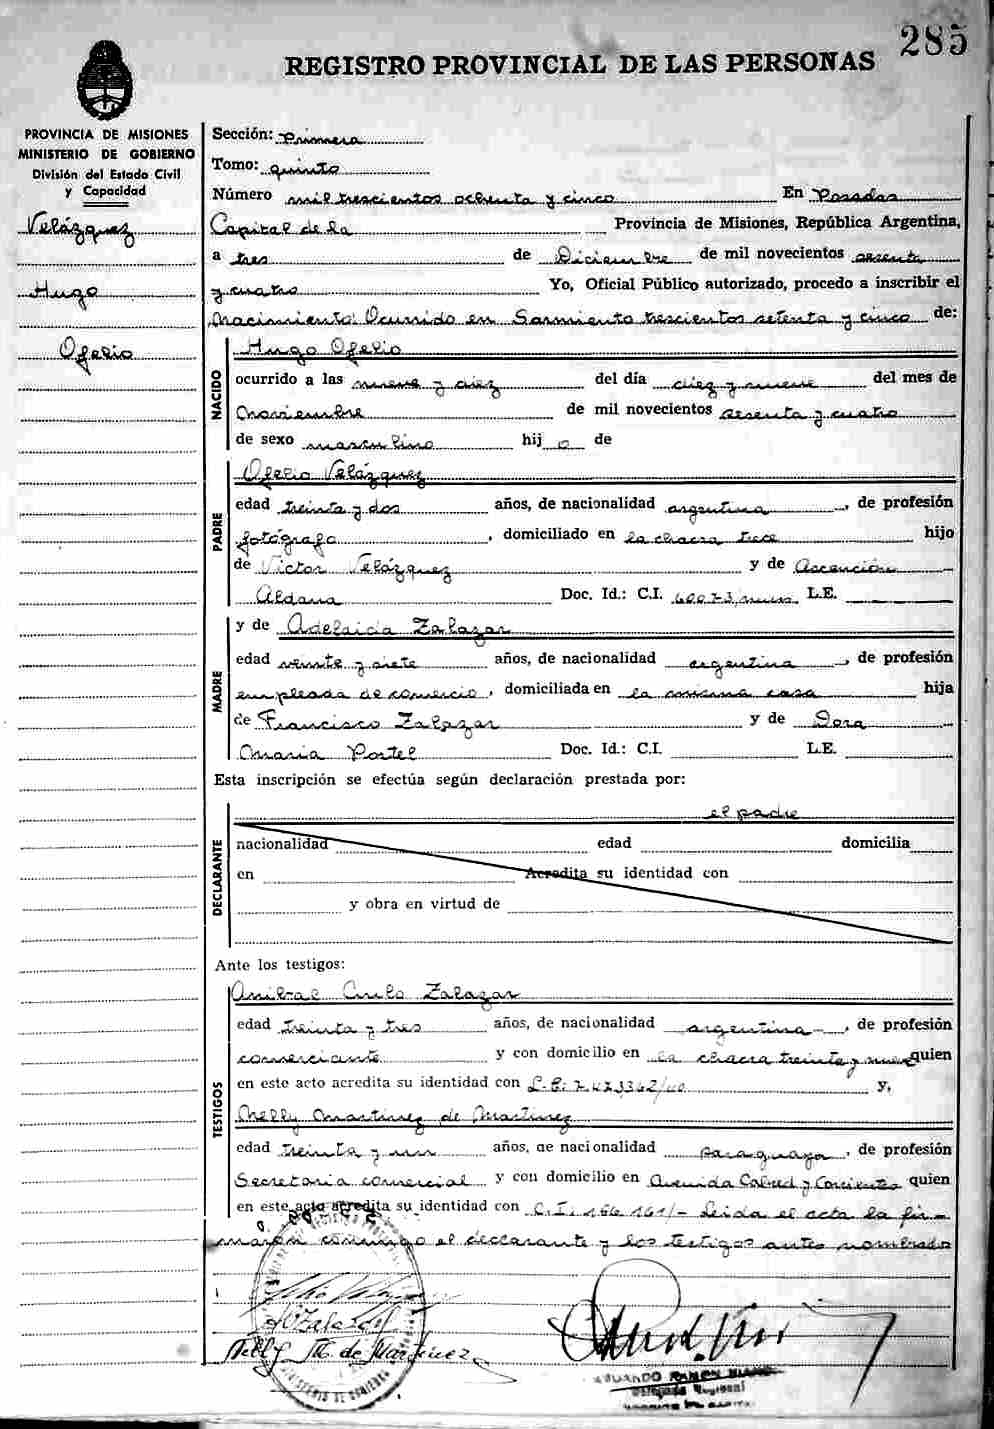 285
REGISTRO PROVINCIAL DE LAS PERSONAS
PROVINCIA DE MISIONES
MINISTERIO DE GOBIERNO
División del Estado Civil
y Capacidad
Velázquez
Hugo
Ofelio
Sección: Primera
Tomo: quinto
Número mil trescientos ochenta y cinco En Posadas
Capital de la Provincia de Misiones, República Argentina,
a tres de Diciembre de mil novecientos sesenta
y cuatro Yo, Oficial Público autorizado, procedo a inscribir el
Nacimiento Ocurrido en Sarmiento trescientos setenta y cinco de:
NACIDO
Hugo Ofelio
ocurrido a las nueve y diez del día diez y nueve del mes de
Noviembre de mil novecientos sesenta y cuatro
de sexo masculino hij o de
PADRE
Ofelio Velázquez
edad treinta y dos años, de nacionalidad argentina, de profesión
fotógrafo, domiciliado en la chacra trece hijo
de Victor Velázquez y de Ascención
Aldana Doc. Id.: C.I. 60073 L.E.
y de Adelaida Zalazar
MADRE
edad veinte y siete años, de nacionalidad argentina, de profesión
empleada de comercio, domiciliada en la misma casa hija
de Francisco Zalazar y de Dora
Maria Portel Doc. Id.: C.I. L.E.
Esta inscripción se efectúa según declaración prestada por:
DECLARANTE
el padre
nacionalidad edad domicilia
en Acredita su identidad con
y obra en virtud de
Ante los testigos:
TESTIGOS
Anibal Zalazar
edad treinta y tres años, de nacionalidad argentina, de profesión
comerciante y con domicilio en la chacra treinta y nueve quien
en este acto acredita su identidad con L.E: 7.473362 y,
Nelly Martinez de Martinez
edad treinta y un años, de nacionalidad paraguaya, de profesión
Secretaria comercial y con domicilio en Avenida Cabred y Corrientes quien
en este acto acredita su identidad con C.I. 166161/- Leida el acta la fir-
maron conmigo el declarante y los testigos antes nombrado
Nelly M. de Martinez